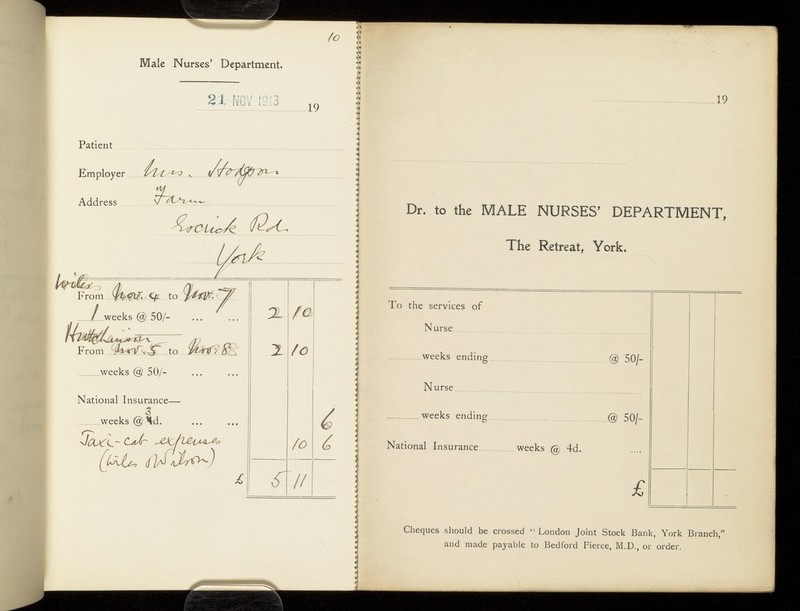 10
Male Nurses' Department.
21 NOV 1913 19
Patient
Employer Mrs. Hodgson
Address Farm
Escrick Rd.
York
Wiles
From Nov. 4 to Nov. 7
1 weeks @ 50/- ... ... 2 10
Hutchinson
From Nov. 5 to Nov. 8 2 10
weeks @ 50/- ... ...
National Insurance—
weeks @ 3d. ... ... 6
Taxi-cab expenses 10 6
(Wiles & Wilson)
£ 5 11
19
Dr. to the MALE NURSES' DEPARTMENT,
The Retreat, York.
To the services of
Nurse
weeks ending @ 50/-
Nurse
weeks ending @ 50/-
National Insurance weeks @ 4d. ....
£
Cheques should be crossed "London Joint Stock Bank, York Branch,"
and made payable to Bedford Pierce, M.D., or order.